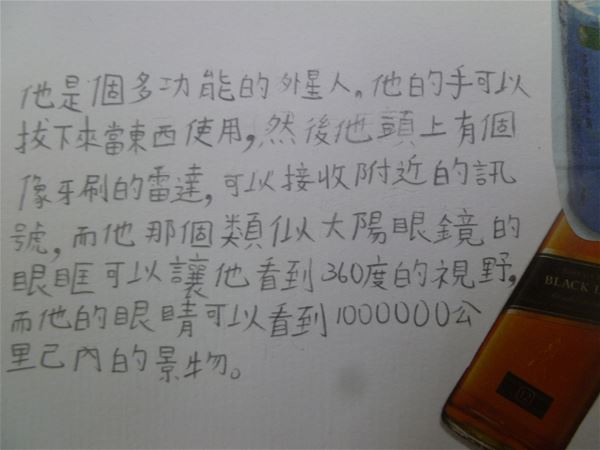 他是個多功能的外星人。他的手可以
拔下來當東西使用,然後他頭上有個
像牙刷的雷達,可以接收附近的訊
號,而他那個類似大陽眼鏡的
眼眶可以讓他看到360度的視野,
而他的眼睛可以看到1000000公
里己內的景物。
BLACK L